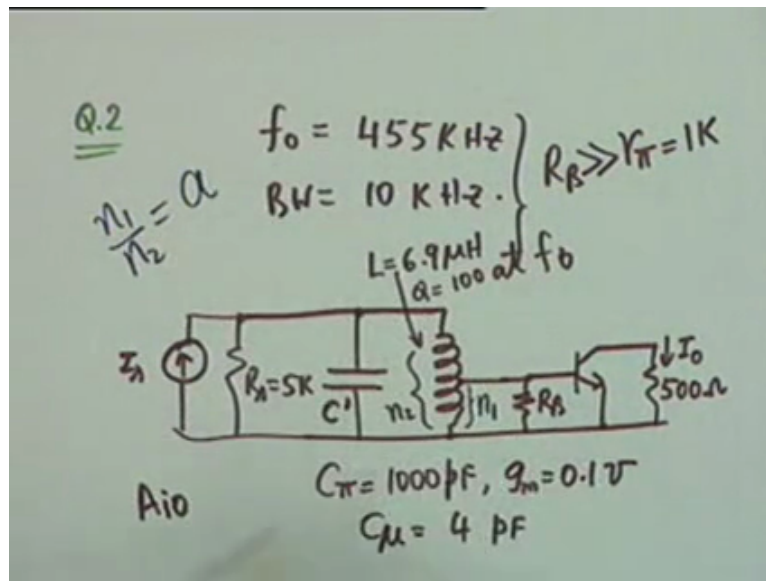 Q.2
f₀ = 455 KHz
n₁/n₂ = a
BW = 10 KHz.
R_B ≫ r_π = 1K
L = 6.9 μH
Q = 100 at f₀
I_s
R_s = 5K
C'
n₂
n₁
R_B
I₀
500Ω
Cπ = 1000 pF, g_m = 0.1 ℧
Cμ = 4 pF
Aio